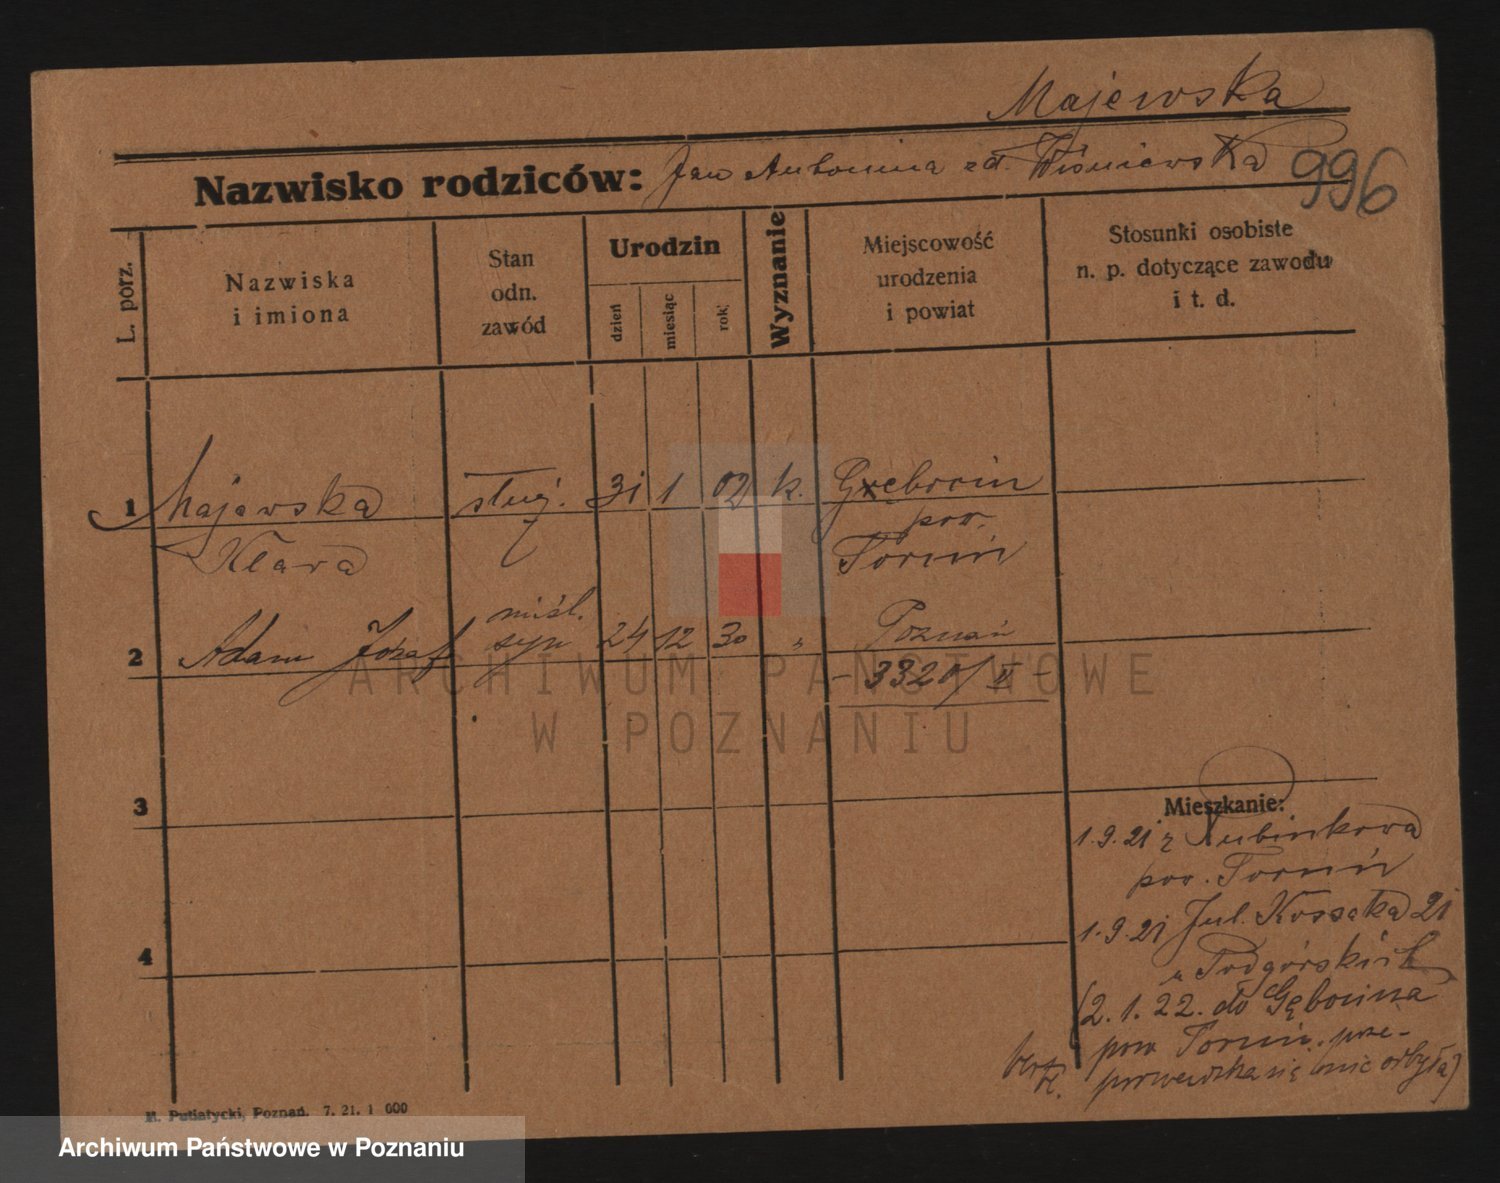 Majewska
Nazwisko rodziców: Jan Antonina zd. Wiśniewska
996
L. porz.
Nazwiska
i imiona
Stan
odn.
zawód
Urodzin
dzień
miesiąc
rok
Wyznanie
Miejscowość
urodzenia
i powiat
Stosunki osobiste
n. p. dotyczące zawodu
i t. d.
1 Majewska służ. 31 1 02 k. Grębocin
pow.
Klara Toruń
2 Adam Józef syn 24 12 30 " Poznań
- 3320/II -
3
Mieszkanie:
1.9.21 z Lubinkowa
pow. Toruń
1.9.21 Jul. Kossaka 21
u Podgórskich
4
(2.1.22. do Gębocina
pow Toruń. prze-
prowadzka się nie odbyła)
M. Putiatycki, Poznań. 7. 21. 1 000
ARCHIWUM PAŃSTWOWE
W POZNANIU
Archiwum Państwowe w Poznaniu